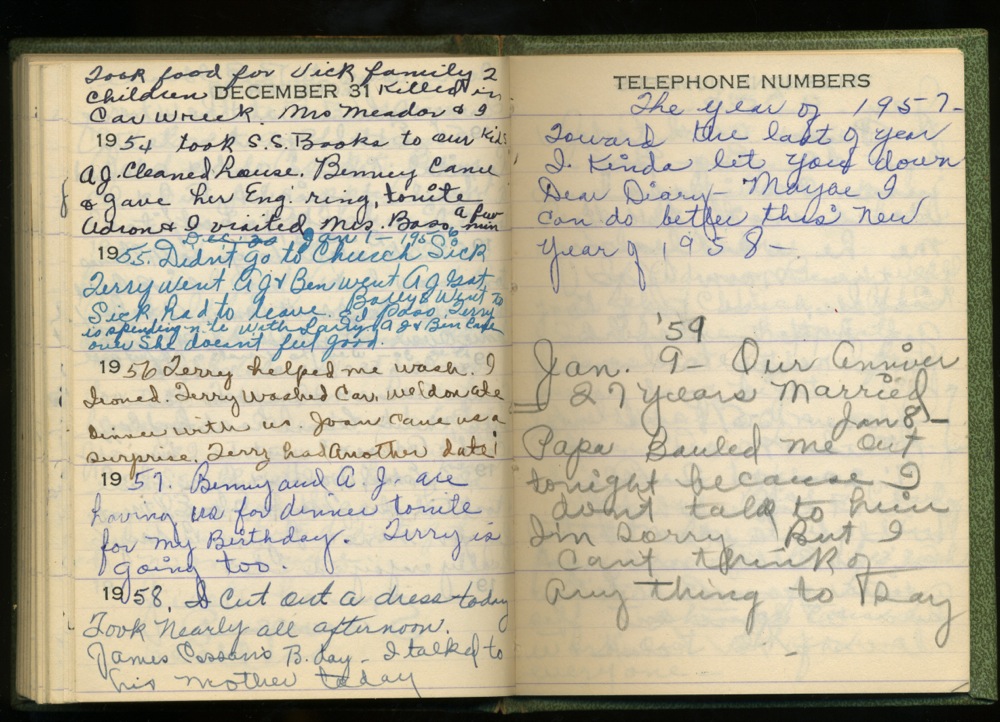 Took food for Vick family 2
children DECEMBER 31 Killed in
Car wreck. Mrs Meador & I
1954 took S.S. Books to our Kids
A.J. Cleaned house. Benney Came
& gave her Eng. ring, tonite
Adron & I visited Mrs. Bass a few min
Dec. 30 Jan 1 - 1956
1955. Didn't go to Church Sick
Terry went A J & Ben went A J Got
Sick, had to leave. Went to
El Paso. Terry
is spending nite with Larry A J & Ben Came
over She doesn't feel good.
1956 Terry helped me wash. I
Ironed. Terry washed Car, Weldon ate
Dinner with us. Joan Gave us a
surprise. Terry had Another date!
1957. Benny and A. J. are
having us for dinner tonite
for my Birthday. Terry is
going too.
1958. I Cut out a dress today
Took Nearly all afternoon.
James B. day - I talked to
his mother today
TELEPHONE NUMBERS
The year of 1957-
Toward the last of year
I. Kinda let you down
Dear Diary - Maybe I
can do better this New
year of 1958 -
'59
Jan. 9 - Our Anniver
27 years Married
Jan 8 -
Papa Bauled me out
tonight because I
don't talk to him
I'm Sorry But I
can't think of
Any thing to Say